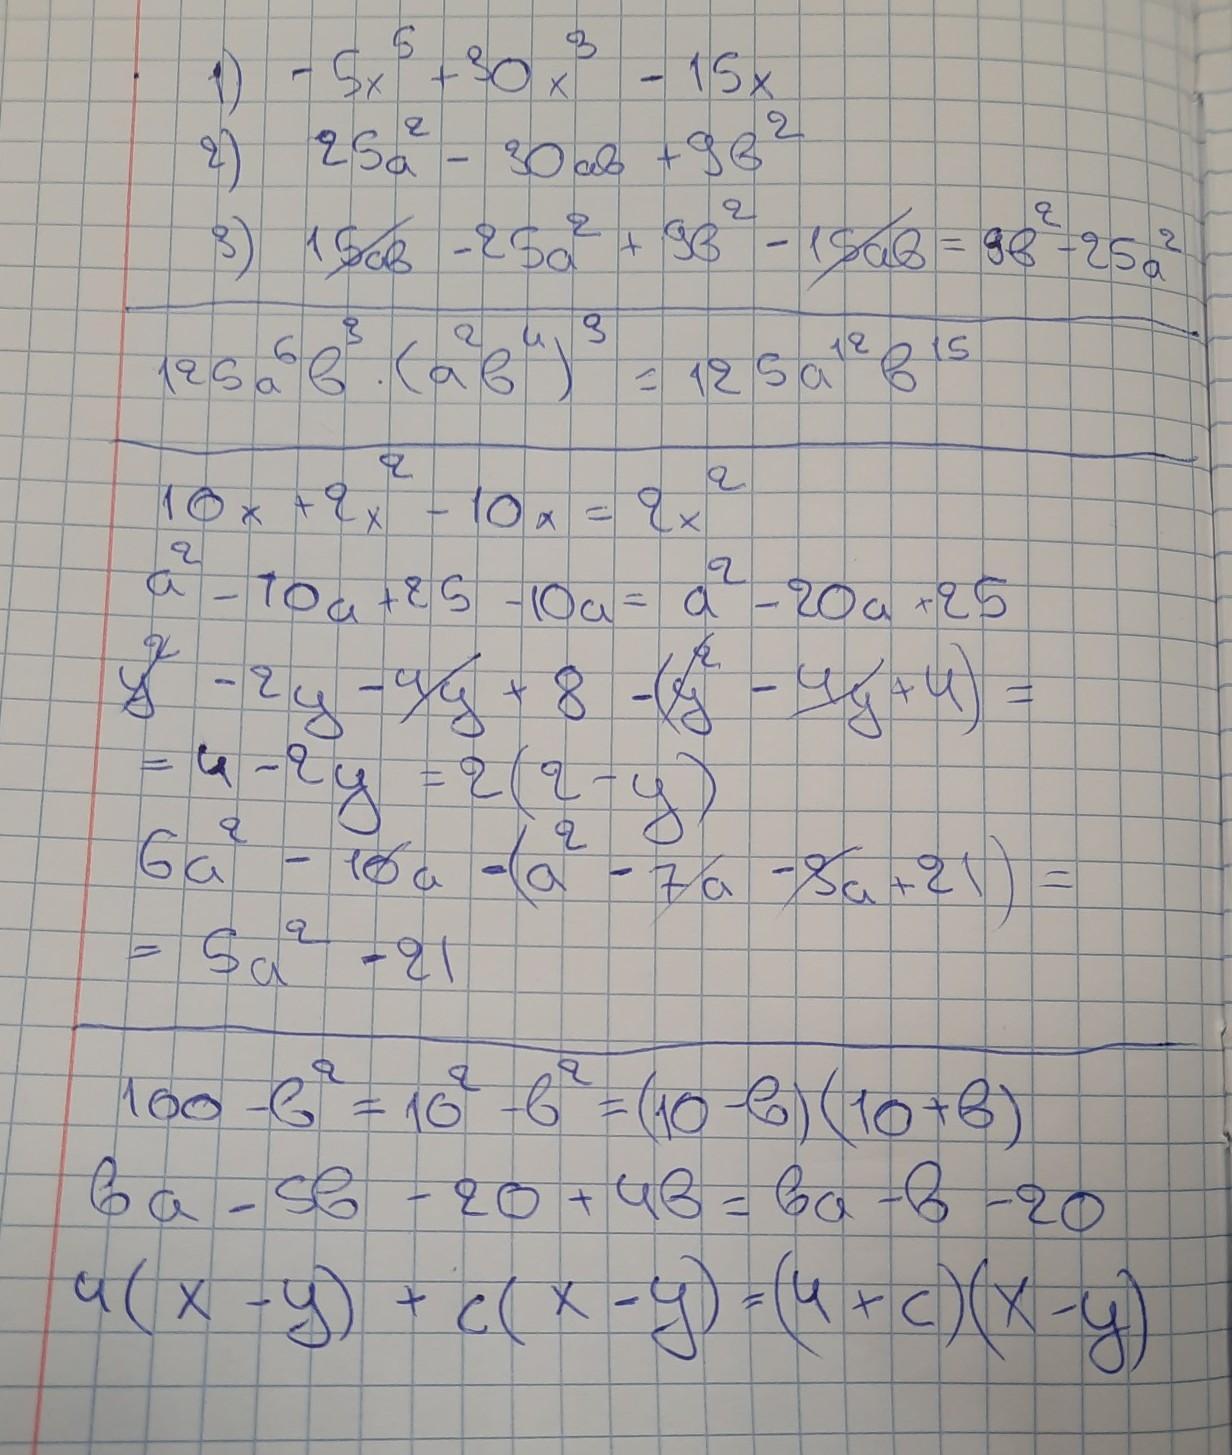 1) -5x⁵ + 30x³ - 15x
2) 25a² - 30ab + 9b²
3) 15ab - 25a² + 9b² - 15ab = 9b² - 25a²
125a⁶b³ · (a²b⁴)³ = 125a¹²b¹⁵
10x + 2x² - 10x = 2x²
a² - 10a + 25 - 10a = a² - 20a + 25
y² - 2y - 4y + 8 - (y² - 4y + 4) =
= 4 - 2y = 2(2 - y)
6a² - 10a - (a² - 7a - 3a + 21) =
= 5a² - 21
100 - b² = 10² - b² = (10 - b)(10 + b)
ba - 5b - 20 + 4b = ba - b - 20
4(x - y) + c(x - y) = (4 + c)(x - y)